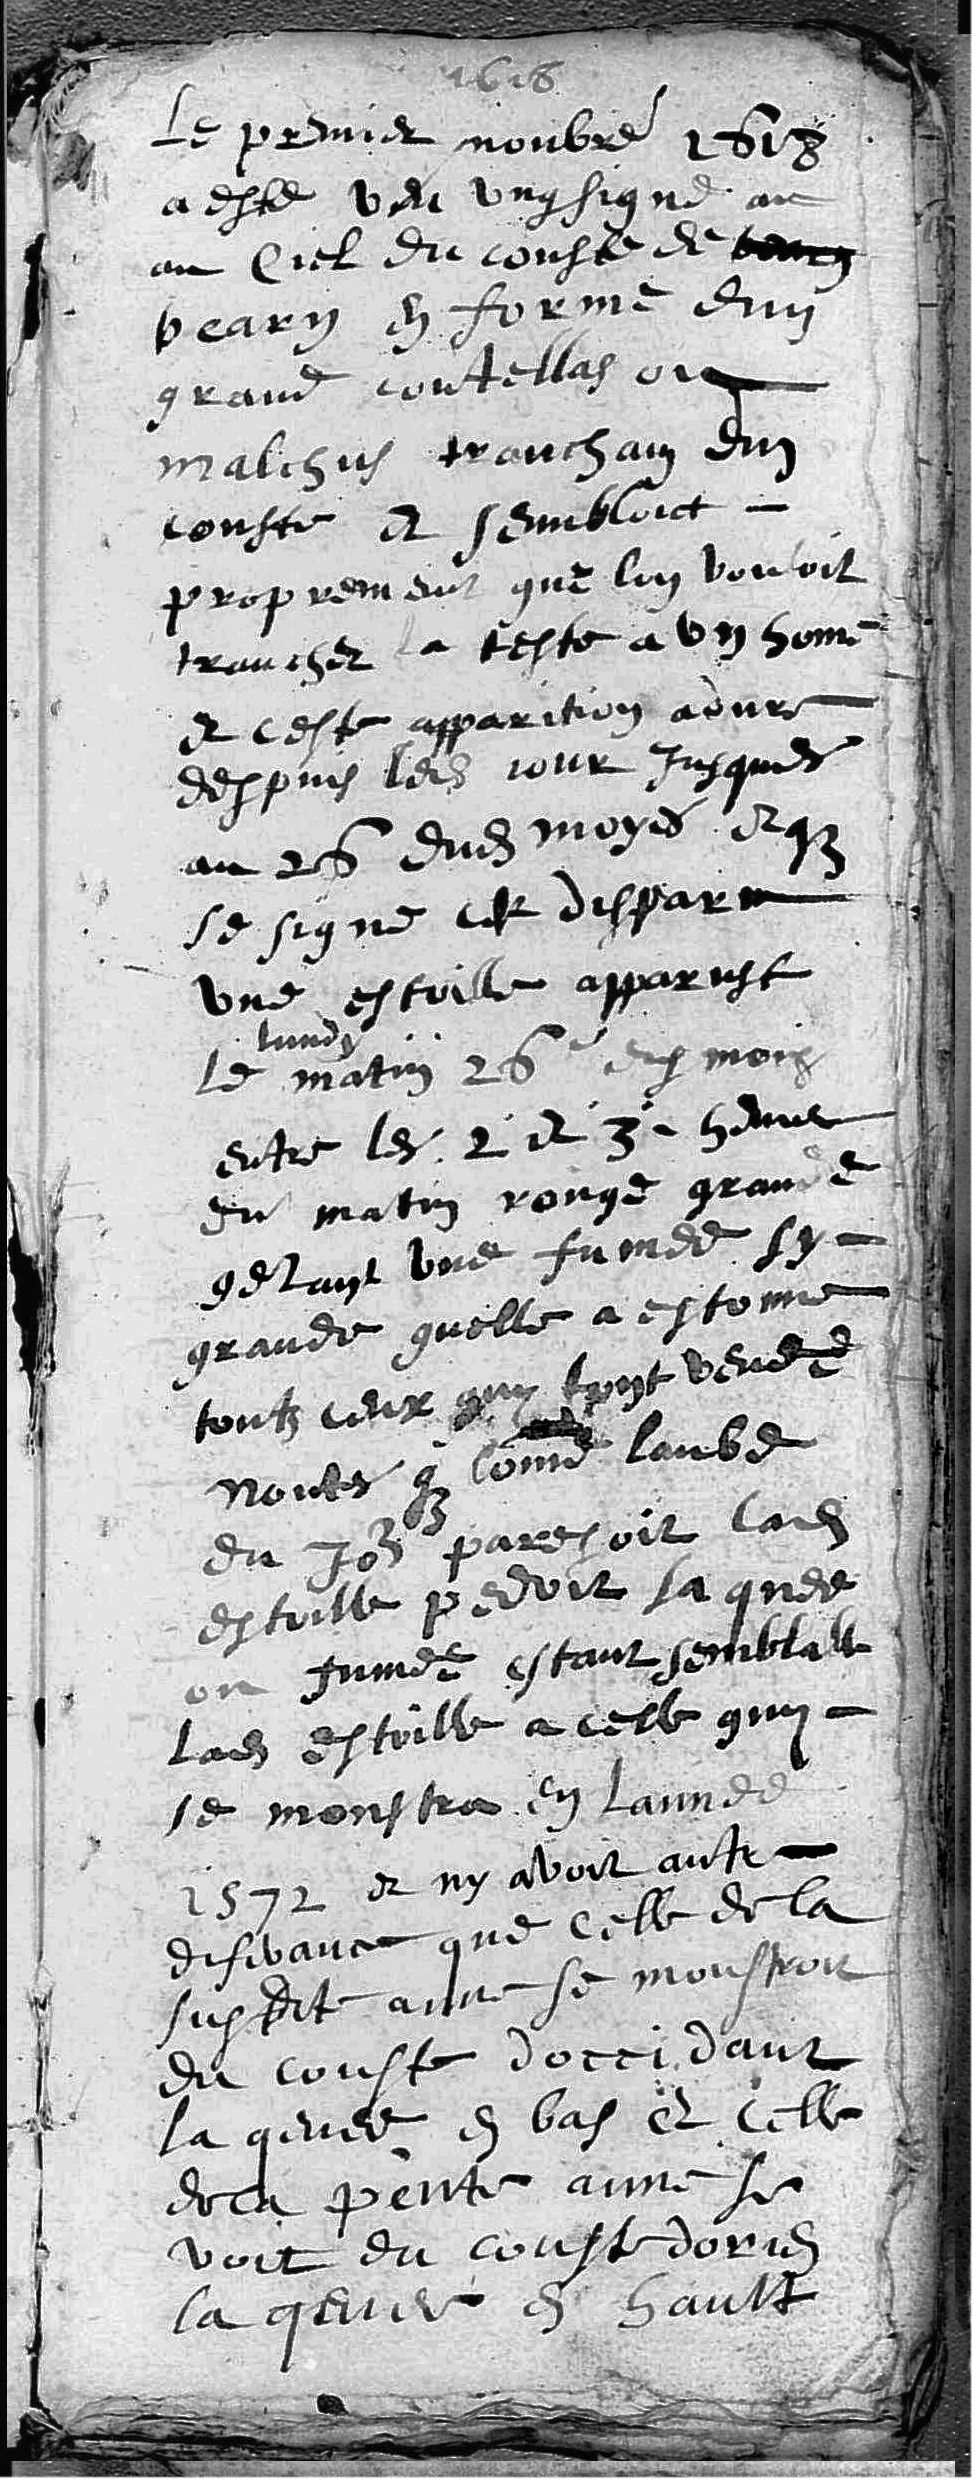 1618
Le premier novbre 1618
a este veu ung signe au
au Ciel du couste de
bearn en forme dun
grand coutellas ou
malchus tranchan dun
couste et sembloict
proprement que lon vouloit
trancher la teste a un home
et ceste apparition a dure
despuis led jour jusques
au 26 dud moys et q
se signe disparu
une estoille apparust
lundy
Le matin 26e dud mois
entre les 2 et 3e heures
du matin rouge grande
getant une fumee sy
grande quelle a estonne
touts ceux quy lont veue
Nottes q come laube
du Jor paresoit lad
estoille perdoit sa queue
ou fumee estant semblable
lad estoille a celle quy
se monstra en lannee
1572 et ny avoit autre
diferance que celle de la
susdite annee se monstroit
du couste doccidant
la queue en bas et celle
de la pente annee se
voit du couste dorien
la queue en hault